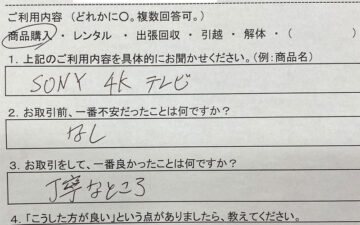 ご利用内容（どれかに○。複数回答可。）
商品購入・レンタル・出張回収・引越・解体・（　　　）
1. 上記のご利用内容を具体的にお聞かせください。(例:商品名)
SONY 4K テレビ
2. お取引前、一番不安だったことは何ですか？
なし
3. お取引をして、一番良かったことは何ですか？
丁寧なところ
4.「こうした方が良い」という点がありましたら、教えてください。